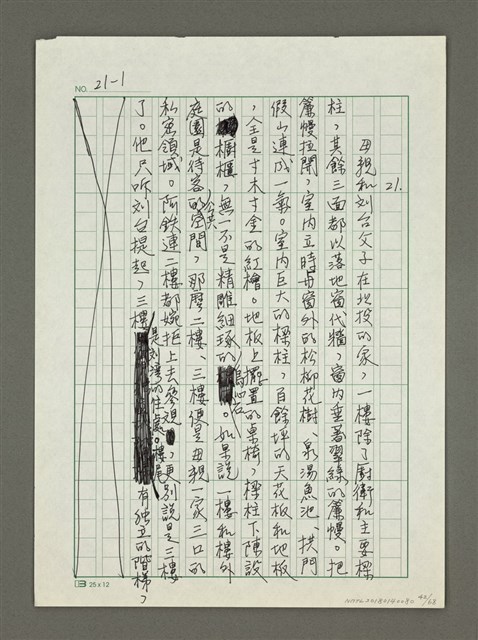 NO. 21-1
21.
母親和刘台父子在北投的家，一樓除了廚衛和主要樑
柱，其餘三面都以落地窗代牆，窗內垂著翠綠的簾幔。把
簾幔拉開，室內立時与窗外的松柳花樹、泉湯魚池、拱門
假山連成一氣。室內巨大的樑柱，百餘坪的天花板和地板
，全是寸木寸金的紅檜。地板上擺置的桌椅，樑柱下陳設
的櫥櫃，無一不是精雕細琢的烏心石。如果說一樓和樓外
庭園是待客的公共空間，那麼二樓、三樓便是母親一家三口的
私密領域。阿鉄連二樓都婉拒上去參观，更別說是三樓
了。他只听刘台提起，三樓是刘漢的住處。樓尾有独立的階梯，
25 x 12
42/68